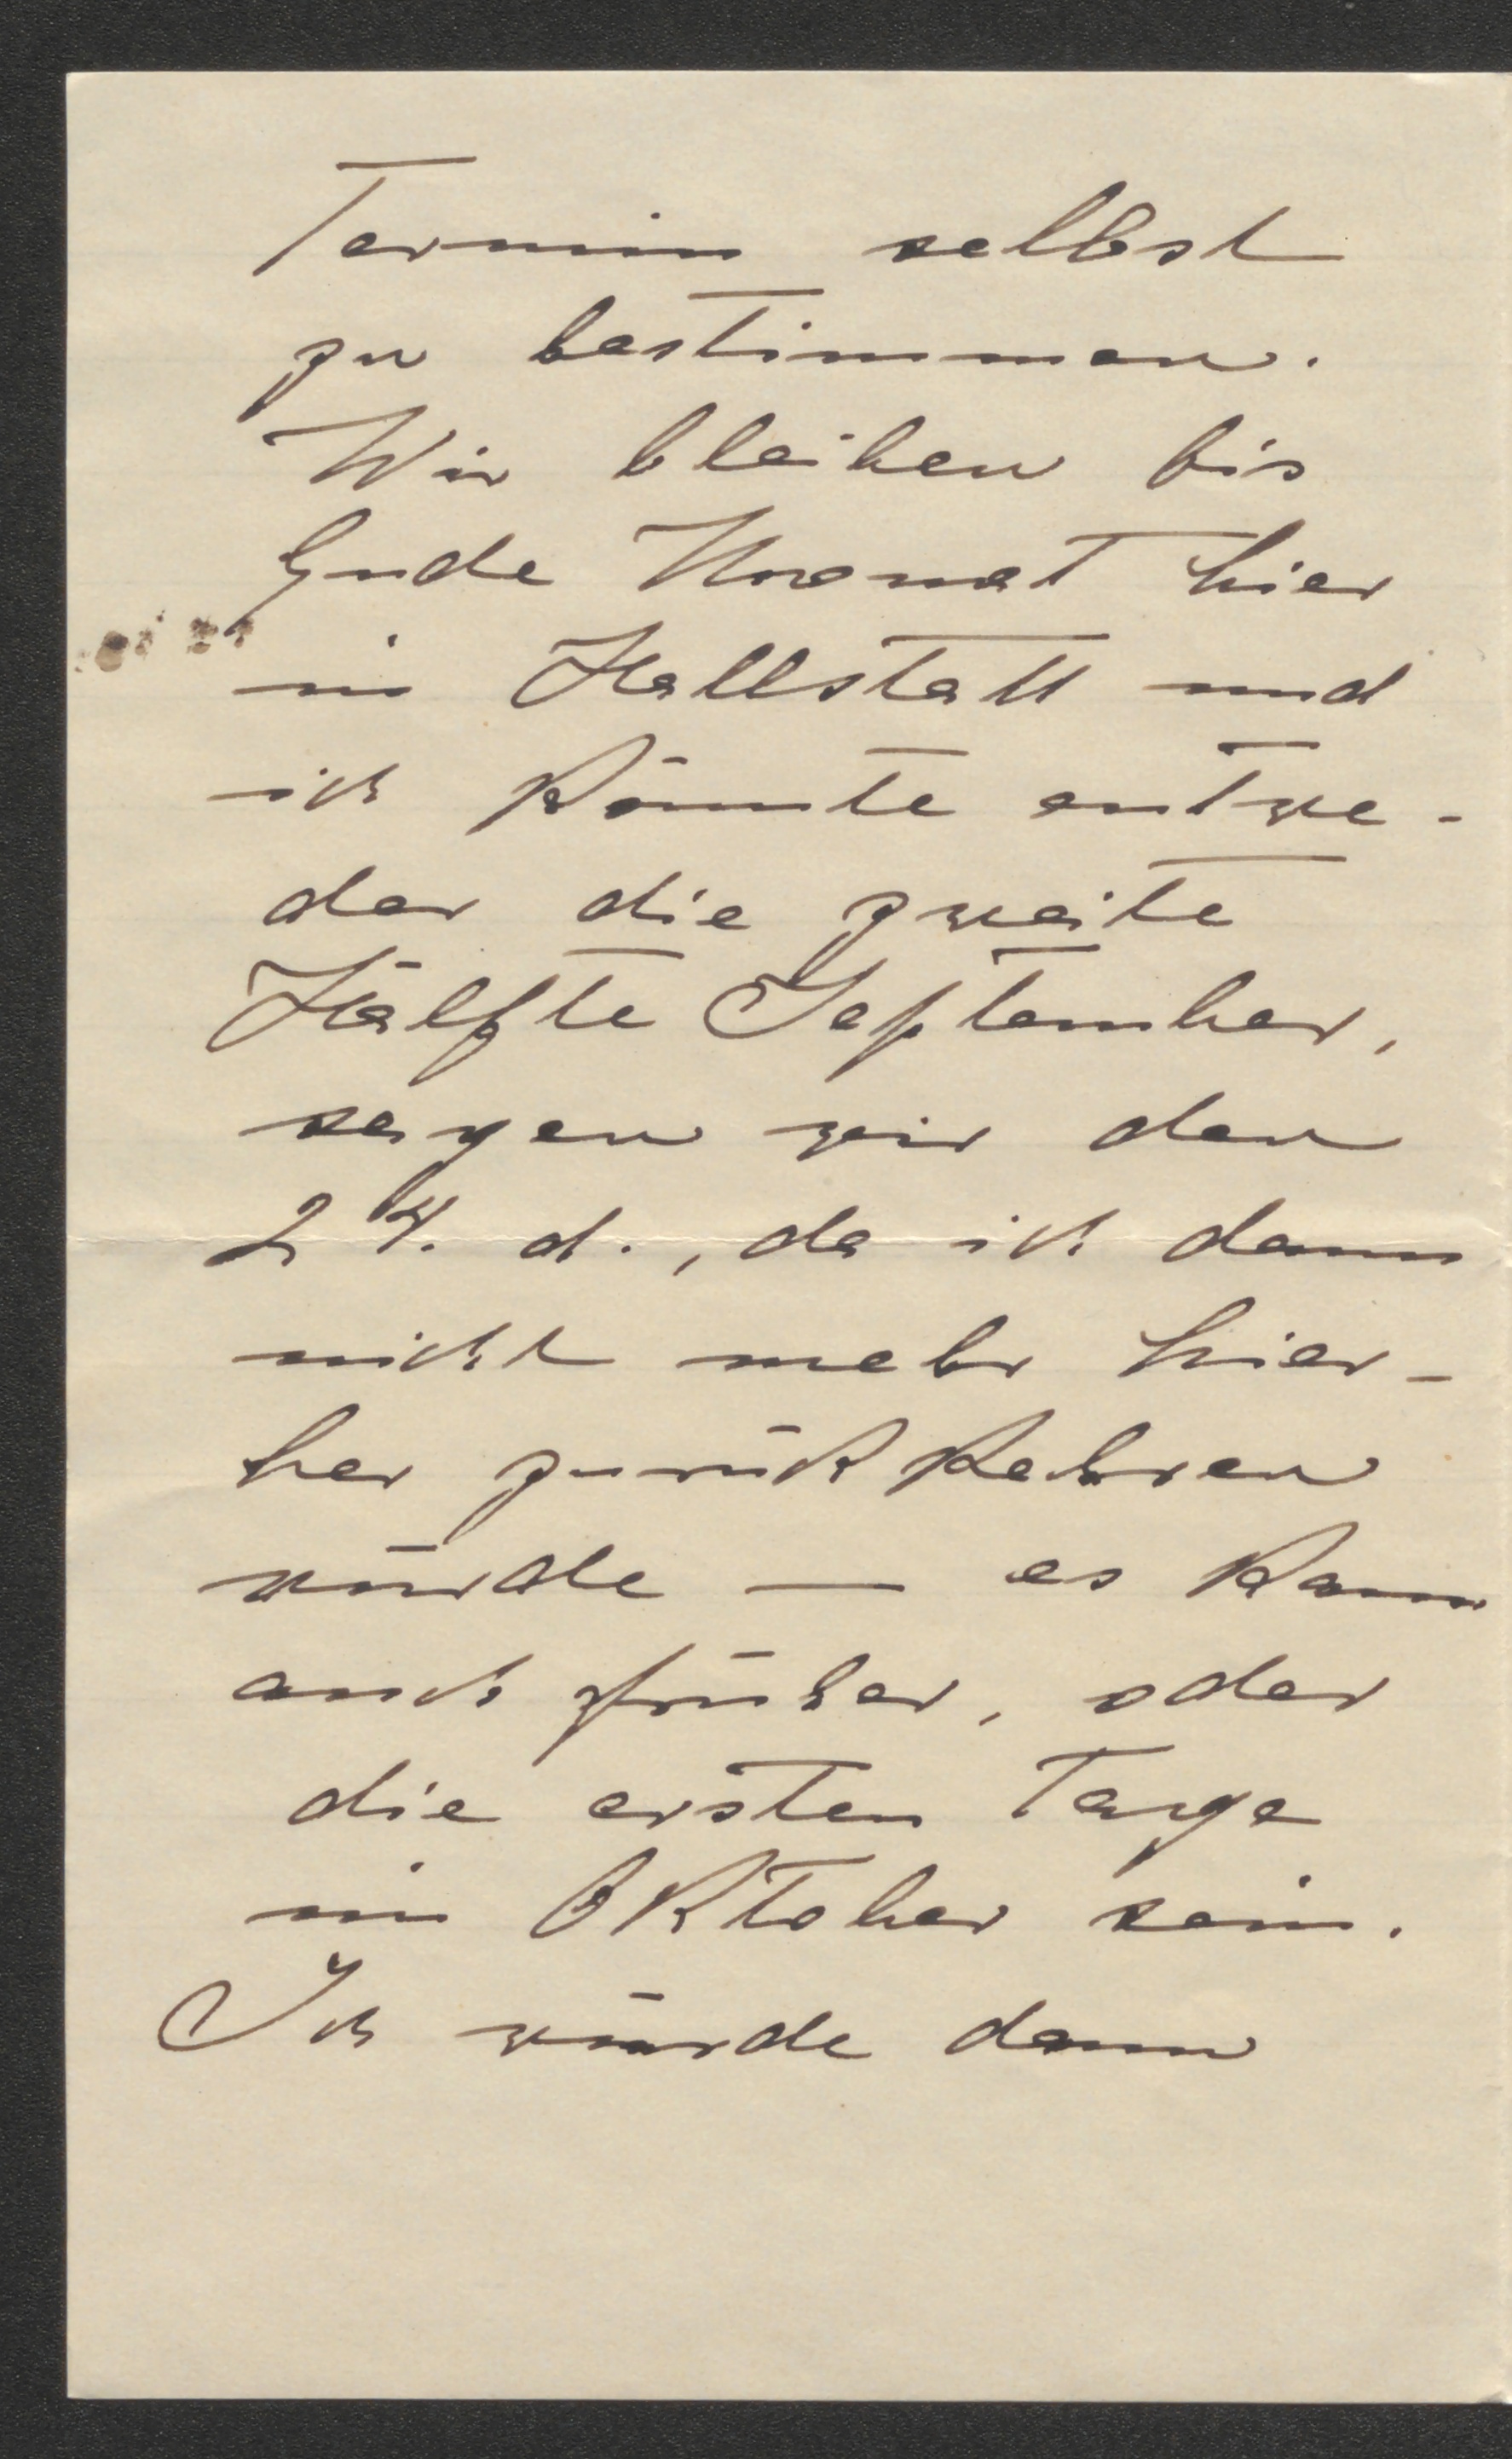 Termin selbst
zu bestimmen.
Wir bleiben bis
Ende Monat hier
in Hallstatt und
ich könnte entwe-
der die zweite
Hälfte September,
sagen wir den
24. d., da ich dann
nicht mehr hier-
her zurückkehren
würde — es kann
auch früher, oder
die ersten Tage
im Oktober sein.
Ich würde dann